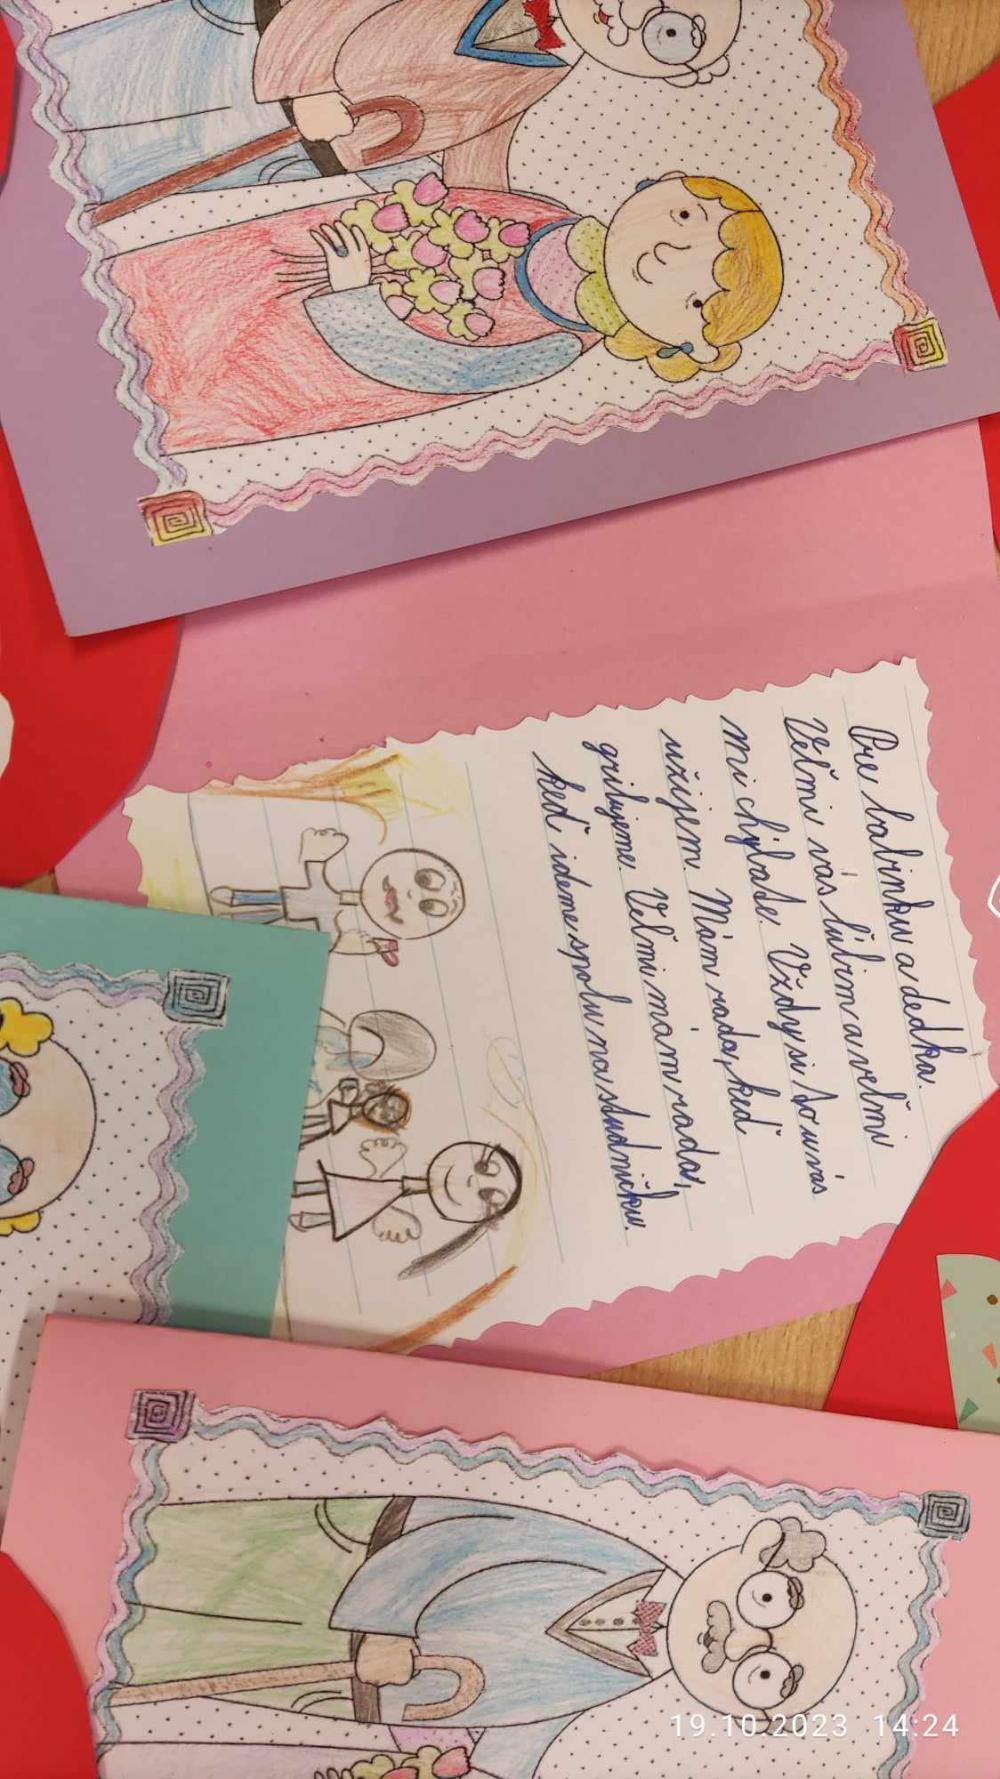 Pre babinku a dedka.
Veľmi vás ľúbim a veľmi
mi chýbate. Vždy si to u vás
užijem. Mám rada, keď
grilujeme. Veľmi mám rada,
keď ideme spolu na studničku.
19.10.2023 14:24